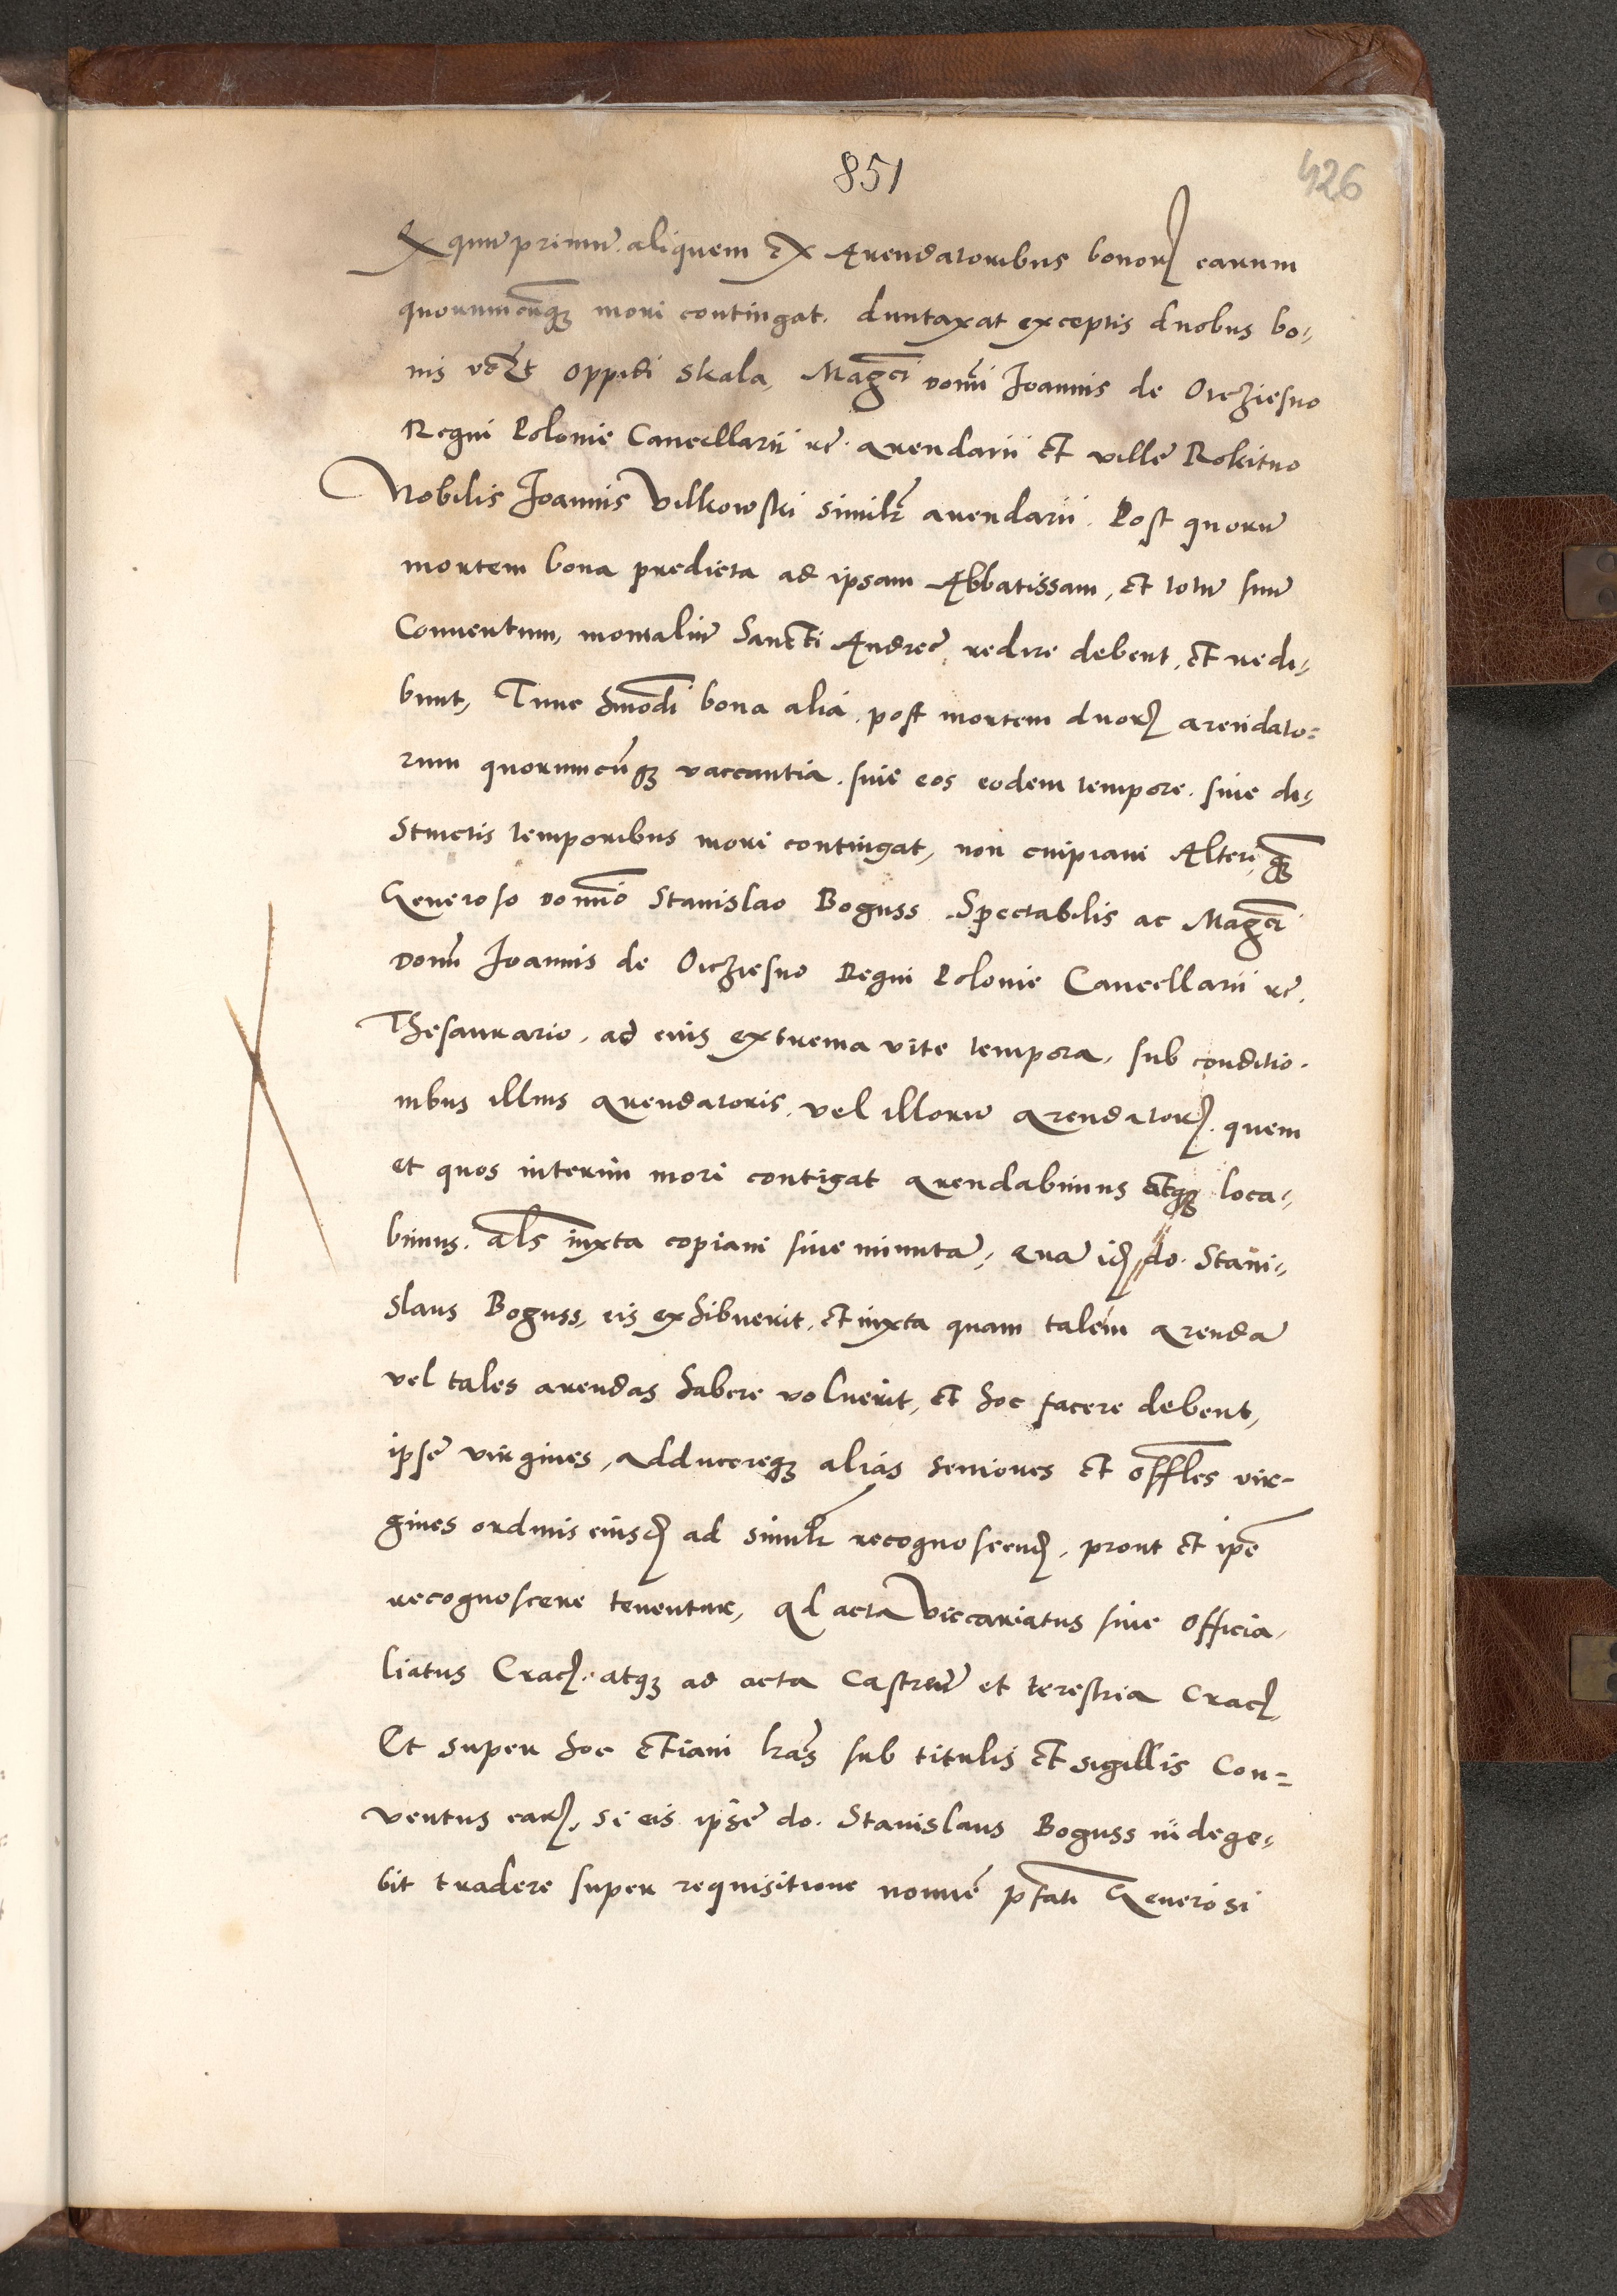 851
426
Ex quumprimum aliquem ex Arendatoribus bonorum earum
quorumcunque mori contingat. duntaxat exceptis duobus bo-
nis vczt oppidi Skala, Magci domi Joannis de Ocziesno
Regni Polonie Cancellarii rc. arendarii et ville Rokitno
Nobilis Joannis Vilkowski similr arendarii. Post quorum
mortem bona predicta ad ipsam Abbatissam, et totum suum
Conuentum, monialium Sancti Andree, redire debent, et redi-
bunt, Tunc hmodi bona alia, post mortem duorum arendato-
rum quorumcunque vaccantia. siue eos eodem tempore. siue di-
stinctis temporibus mori contingat, non cuipiam Alteri, quam
Generoso domino Stanislao Boguss Spectabilis ac Magci
domi Joannis de Ocziesno Regni Polonie Cancellarii rc.
Thesaurario, ad eius extrema vite tempora, sub conditio-
nibus illius arendatoris, vel illorum arendatorum. quem
et quos interim mori contigat arendabimus atque loca-
bimus. als iuxta copiam siue minutam, quam idem do. Stani-
slaus Boguss, eis exhibuerit, et iuxta quam talem arendam
vel tales arendas habere voluerit, et hoc facere debent,
ipse virgines, adducereque alias seniores et offles vir-
gines ordinis eiusdem ad similr recognoscendum, prout et ipse
recognoscere tenentur, ad acta Viccariatus siue officia-
liatus Crac. atque ad acta castrum et terestria Crac.
Et super hoc etiam lras sub titulis et sigillis Con-
ventus earum, se eis ipse do. Stanislaus Boguss indege-
bit tradere super requisitione nomine pfati Generosi